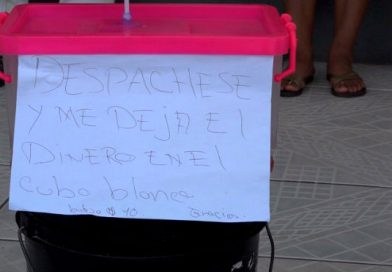 DESPACHESE
Y ME DEJA El
DINERO EN El
cubo blanco
Gracias